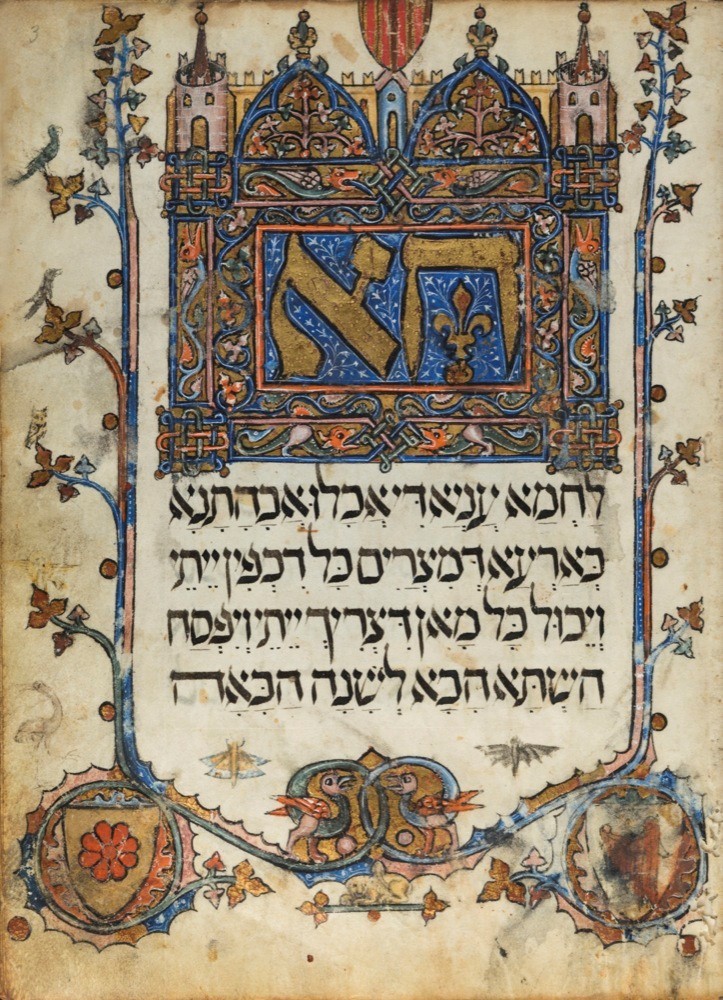 3
הא
לחמא עניא די אכלו אבהתנא
בארעא דמצרים כל דכפין ייתי
ויכול כל מאן דצריך ייתי ויפסח
השתא הכא לשנה הבאה